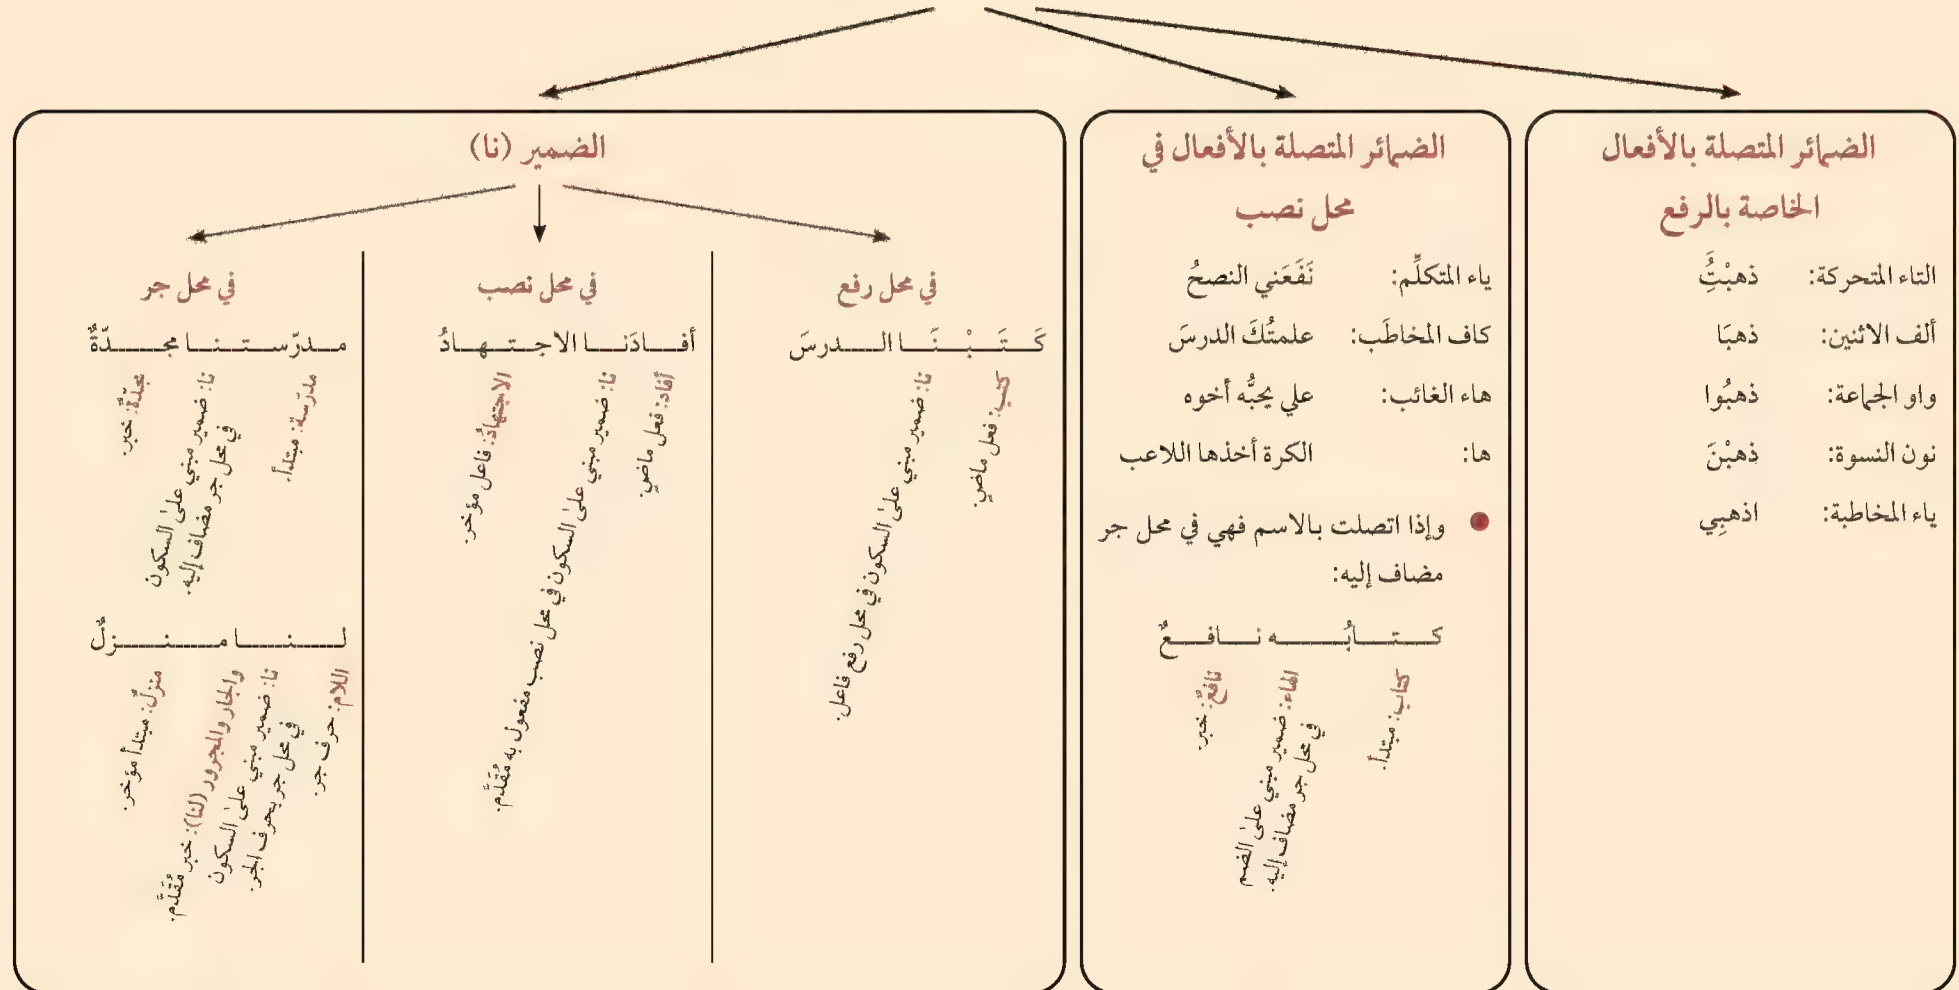 الضمائر المتصلة بالأفعال
الخاصة بالرفع
التاء المتحركة: ذهبْتَُِ
ألف الاثنين: ذهبَا
واو الجماعة: ذهبُوا
نون النسوة: ذهبْنَ
ياء المخاطبة: اذهبِي
الضمائر المتصلة بالأفعال في
محل نصب
ياء المتكلِّم: نَفَعَني النصحُ
كاف المخاطَب: علمتُكَ الدرسَ
هاء الغائب: علي يحبُّه أخوه
ها: الكرة أخذها اللاعب
وإذا اتصلت بالاسم فهي في محل جر
مضاف إليه:
كتابُه نافعٌ
كتاب: مبتدأ.
الهاء: ضمير مبني على الضم
في محل جر مضاف إليه.
نافعٌ: خبر.
الضمير (نا)
في محل رفع
كَتَبْنَا الدرسَ
كتب: فعل ماضٍ.
نا: ضمير مبني على السكون في محل رفع فاعل.
في محل نصب
أفادَنا الاجتهادُ
أفاد: فعل ماضٍ.
نا: ضمير مبني على السكون في محل نصب مفعول به مُقَدَّم.
الاجتهادُ: فاعل مؤخر.
في محل جر
مدرّستنا مجدّةٌ
مدرّسة: مبتدأ.
نا: ضمير مبني على السكون
في محل جر مضاف إليه.
مجدّةٌ: خبر.
لنا منزلٌ
اللام: حرف جر.
نا: ضمير مبني على السكون
في محل جر بحرف الجر.
والجار والمجرور (لنا): خبر مُقَدَّم.
منزلٌ: مبتدأ مؤخر.